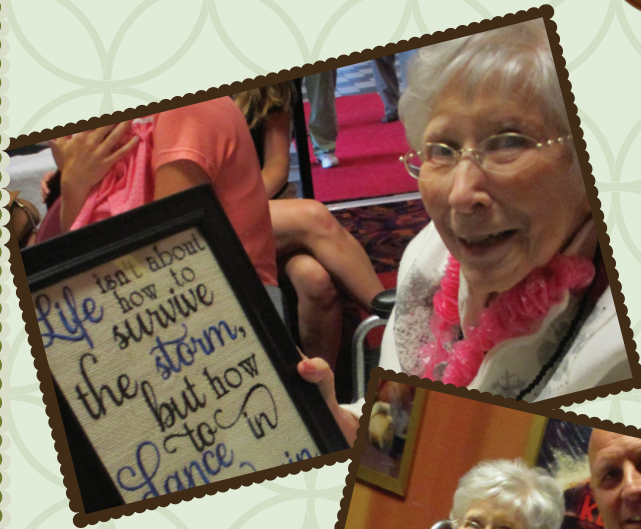 Life isn't about
how to
survive
the storm,
but how
to
dance in